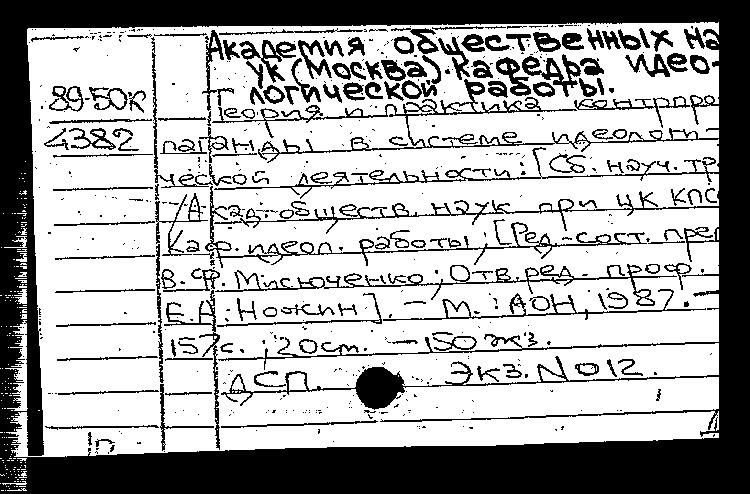 Академия общественных на
ук (Москва). Кафедра идео-
логической работы.
89-50к
Теория и практика контрпро
4382
паганды в системе идеологи-
ческой деятельности: [Сб. науч. тр
/Акад. обществ. наук при ЦК КПС
Каф. идеол. работы; [Ред.-сост. пре
В.Ф. Мисюченко; Отв. ред. проф.
Е.А. Ножин]. – М.: АОН, 1987. –
157с.; 20см. – 150 экз.
ДСП. Экз. N 012.